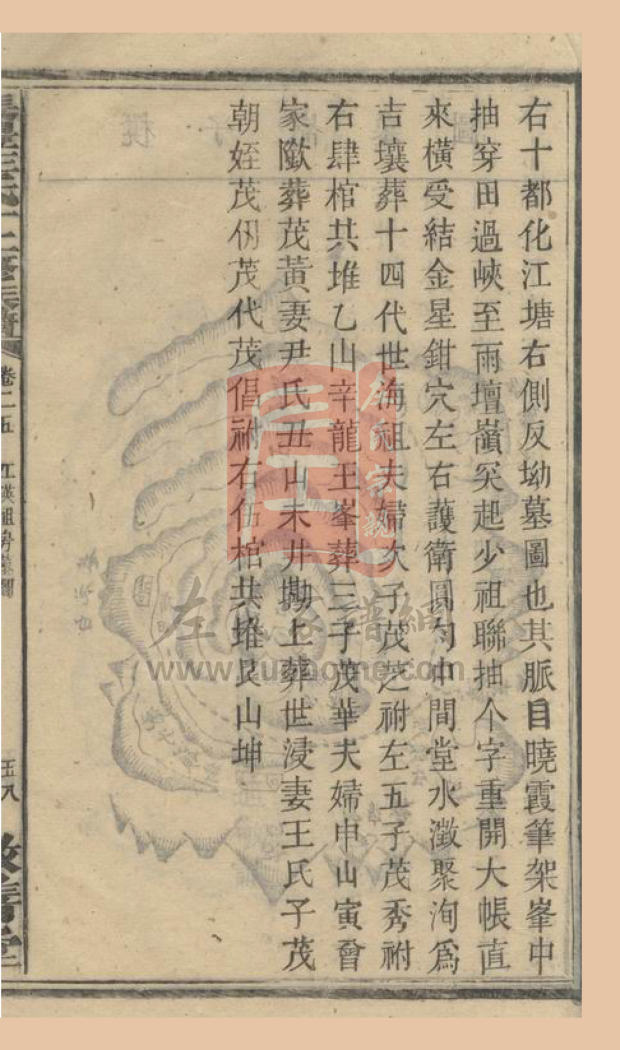 右十都化江塘右側反坳墓圖也其脈目曉霞筆架峯中
抽穿田過峽至雨壇嶺突起少祖聯抽个字重開大帳直
來橫受結金星鉗穴左右護衛圓勻中間堂水澂聚洵爲
吉壤葬十四代世海祖夫婦次子茂芝祔左五子茂秀祔
右肆棺共堆乙山辛龍王峯葬三子茂華夫婦申山寅曾
家歞葬茂黃妻尹氏丑山未井㘭上葬世浸妻王氏子茂
朝姪茂仞茂代茂倡祔右伍棺共堆艮山坤
卷二五
五八
敦善堂
www.zuohome.com